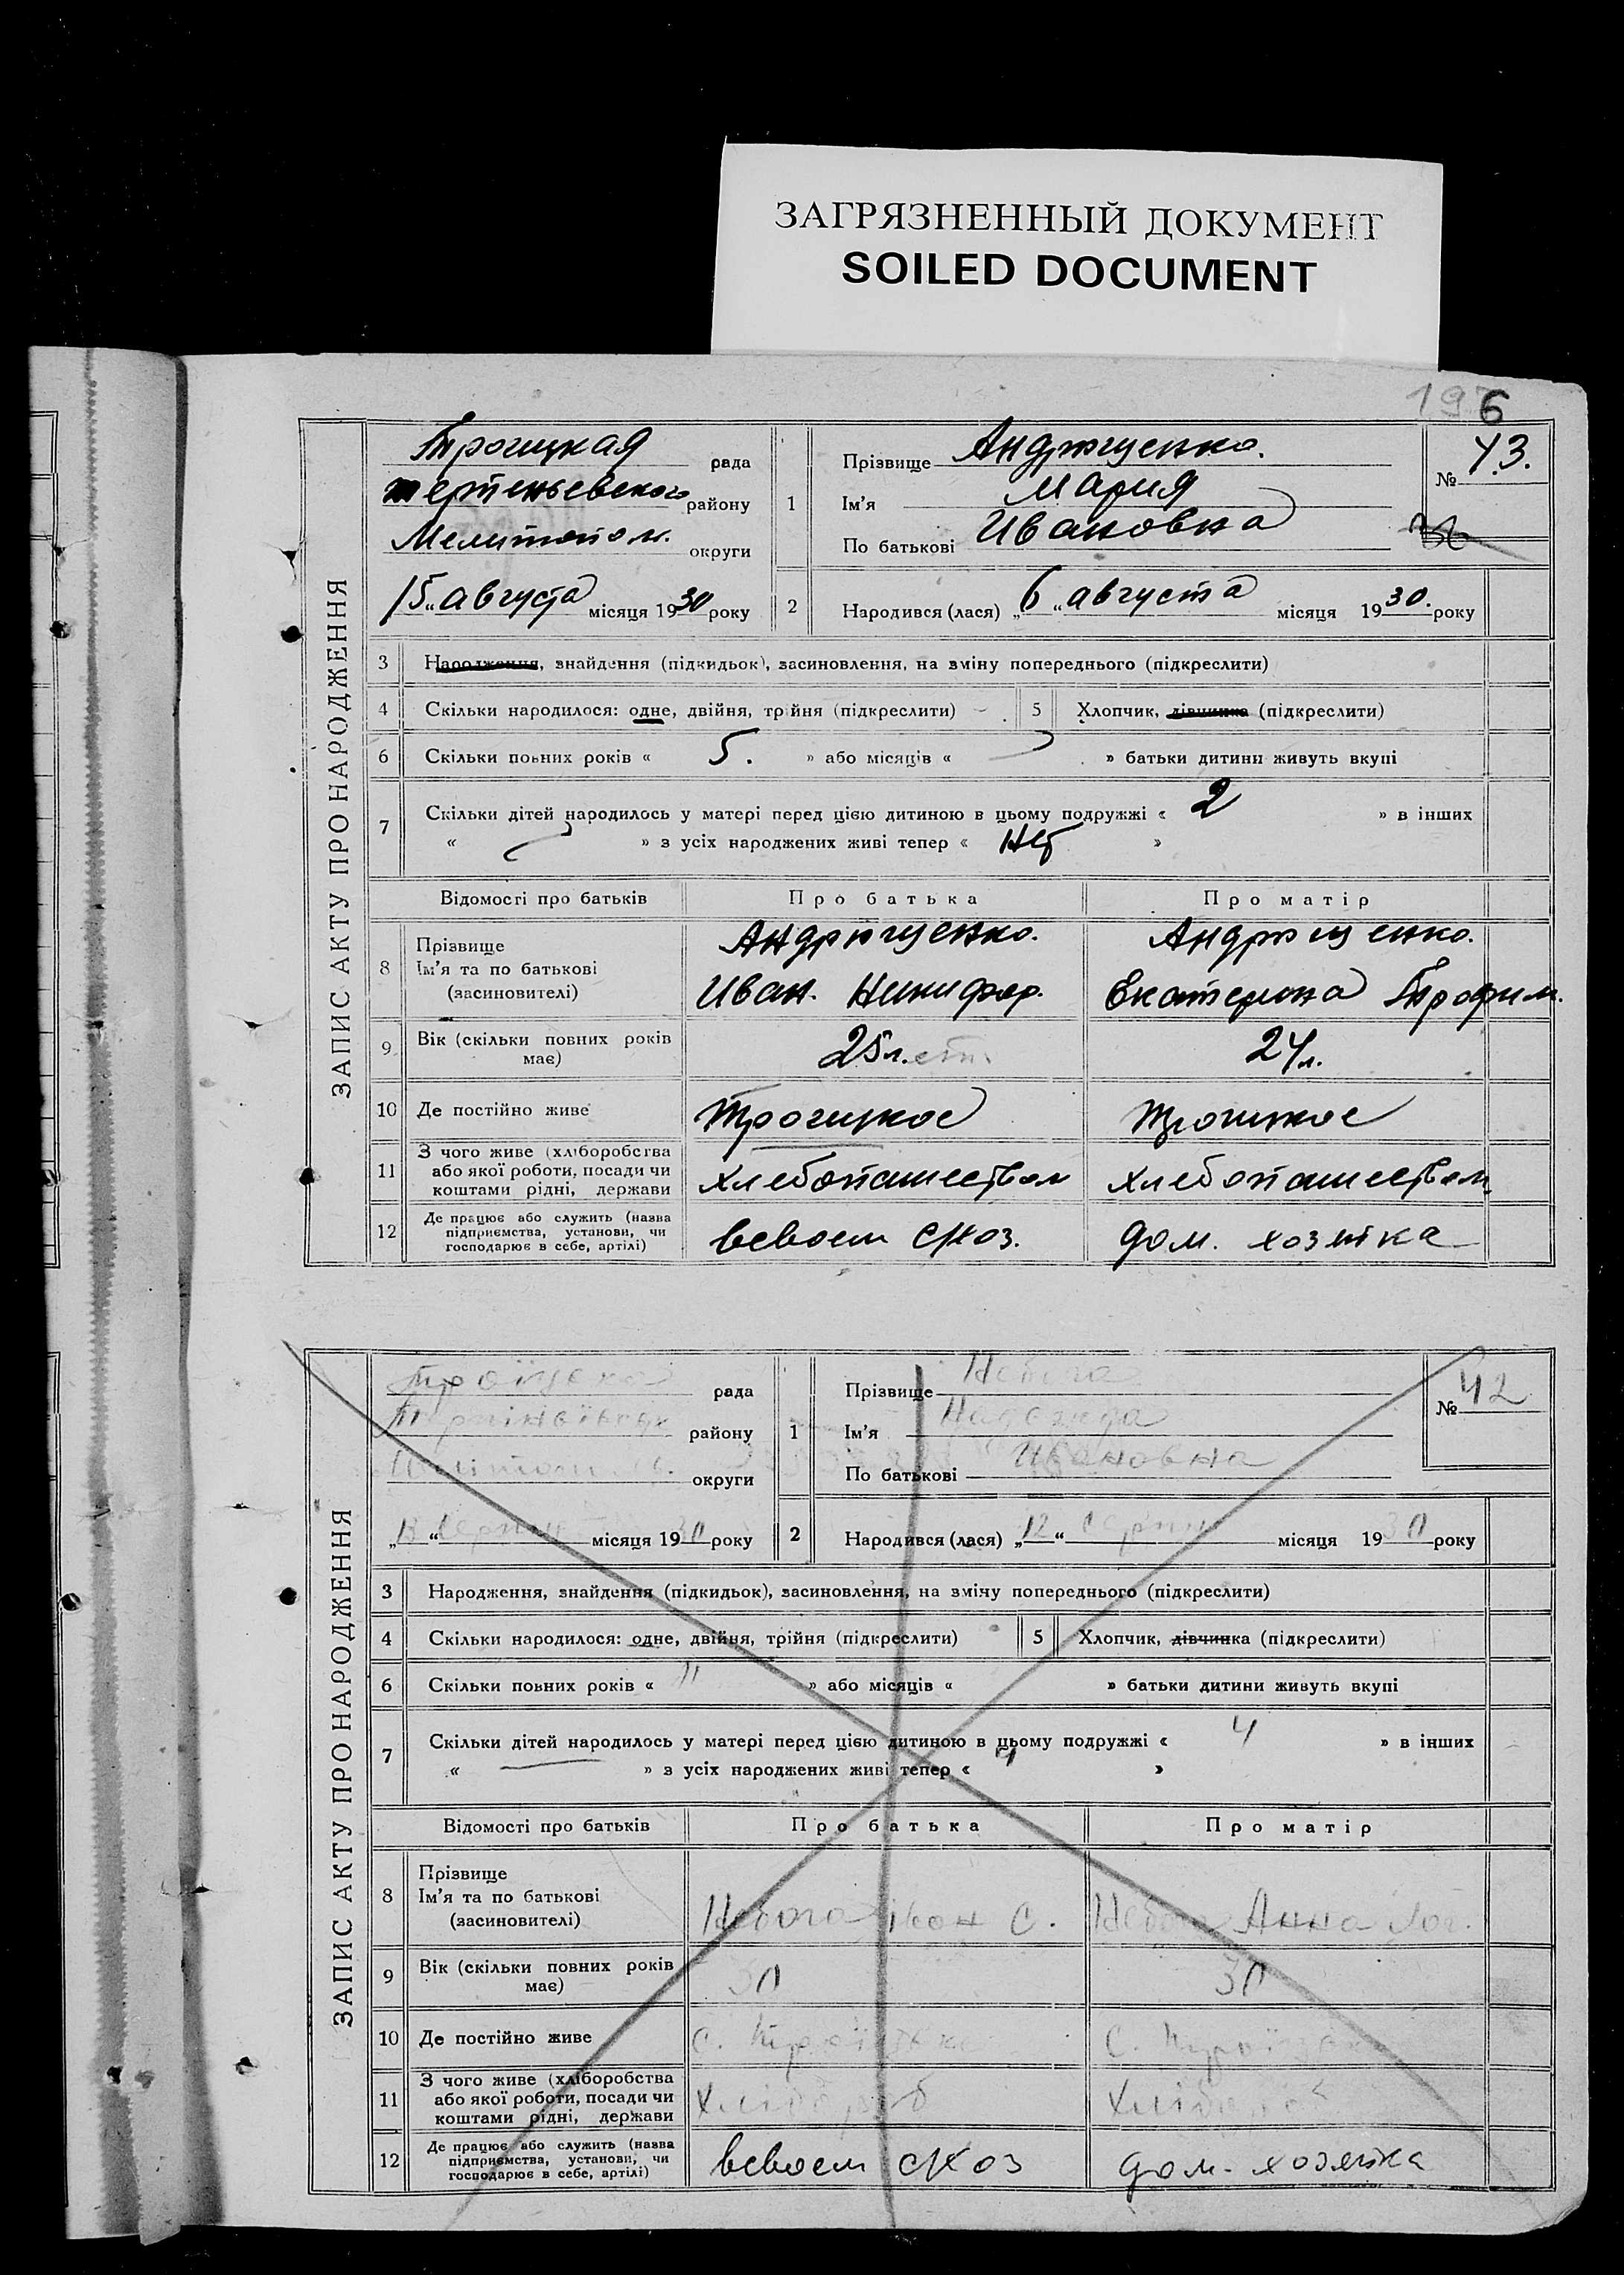 ЗАГРЯЗНЕННЫЙ ДОКУМЕНТ
SOILED DOCUMENT
6
ЗАПИС АКТУ ПРО НАРОДЖЕННЯ
Троицкая рада
району
Мелитопол. округи
15 „ августа місяця 1930 року
1 Прізвище Андрющенко.
Ім'я Мария
По батькові Ивановна
№ 43.
2 Народився (лася) „ 6 “ августа місяця 1930. року
3 Народження, знайдення (підкидьок), засиновлення, на зміну попереднього (підкреслити)
4 Скільки народилося: одне, двійня, трійня (підкреслити) 5 Хлопчик, дівчинка (підкреслити)
6 Скільки повних років « 5. » або місяців « » батьки дитини живуть вкупі
7 Скільки дітей народилось у матері перед цією дитиною в цьому подружжі « 2 » в інших
« » з усіх народжених живі тепер « »
Відомості про батьків Про батька Про матір
8 Прізвище Андрющенко. Андрющенко.
Ім'я та по батькові
(засиновителі) Иван. Никифор. Екатерина Трофим.
9 Вік (скільки повних років
має) 25 л. 24 л.
10 Де постійно живе Троицкое Троицкое
11 З чого живе (хліборобства
або якої роботи, посади чи
коштами рідні, держави хлебопашеством хлебопашеством
12 Де працює або служить (назва
підприємства, установи, чи
господарює в себе, артілі) всвоем с/хоз. дом. хозяйка
ЗАПИС АКТУ ПРО НАРОДЖЕННЯ
Троїцька рада
району
округи
„ “ місяця 1930 року
1 Прізвище Небога
Ім'я Надежда
По батькові Ивановна
№ 42
2 Народився (лася) „ 12 “ серпня місяця 1930 року
3 Народження, знайдення (підкидьок), засиновлення, на зміну попереднього (підкреслити)
4 Скільки народилося: одне, двійня, трійня (підкреслити) 5 Хлопчик, дівчинка (підкреслити)
6 Скільки повних років « 11 » або місяців « » батьки дитини живуть вкупі
7 Скільки дітей народилось у матері перед цією дитиною в цьому подружжі « 4 » в інших
« — » з усіх народжених живі тепер « 4 »
Відомості про батьків Про батька Про матір
8 Прізвище
Ім'я та по батькові
(засиновителі) Небога Іван С. Небога Анна
9 Вік (скільки повних років
має) 30 30
10 Де постійно живе с. с.
11 З чого живе (хліборобства
або якої роботи, посади чи
коштами рідні, держави Хлібороб Хлібороб
12 Де працює або служить (назва
підприємства, установи, чи
господарює в себе, артілі) всвоем с/хоз дом. хозяйка